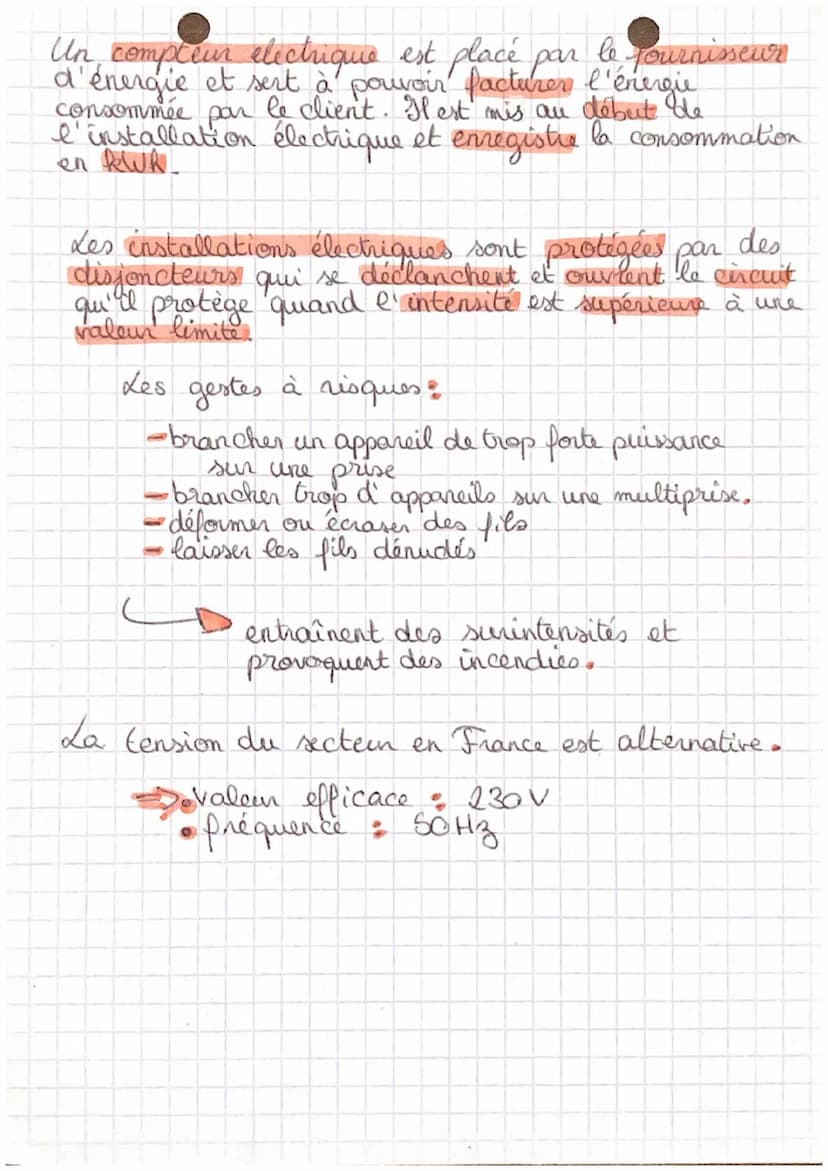 Un compteur electrique est placé par le fournisseur
d'énergie et sert à pouvoir facturer l'énergie
consommée par le client. Il est mis au début de
l'installation électrique et enregistre la consommation
en kWh.
Les installations électriques sont protégées par des
disjoncteurs qui se déclanchent et ouvrent le circuit
qu'il protège quand l'intensité est supérieure à une
valeur limite.
Les gestes à risques :
- brancher un appareil de trop forte puissance
sur une prise
- brancher trop d'appareils sur une multiprise.
- déformer ou écraser des fils
- laisser les fils dénudés
entraînent des surintensités et
provoquent des incendies.
La tension du secteur en France est alternative.
⇒ • valeur efficace : 230 V
• fréquence : 50 Hz